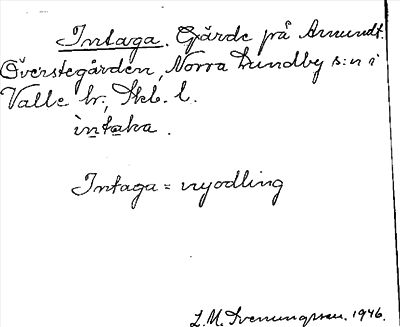 Intaga. Gärde på Amundt.
Överstegården, Norra Lundby s:n i
Valle hr., Skb. l.
intaka.
Intaga = nyodling
L. M. Svenungsson. 1946.